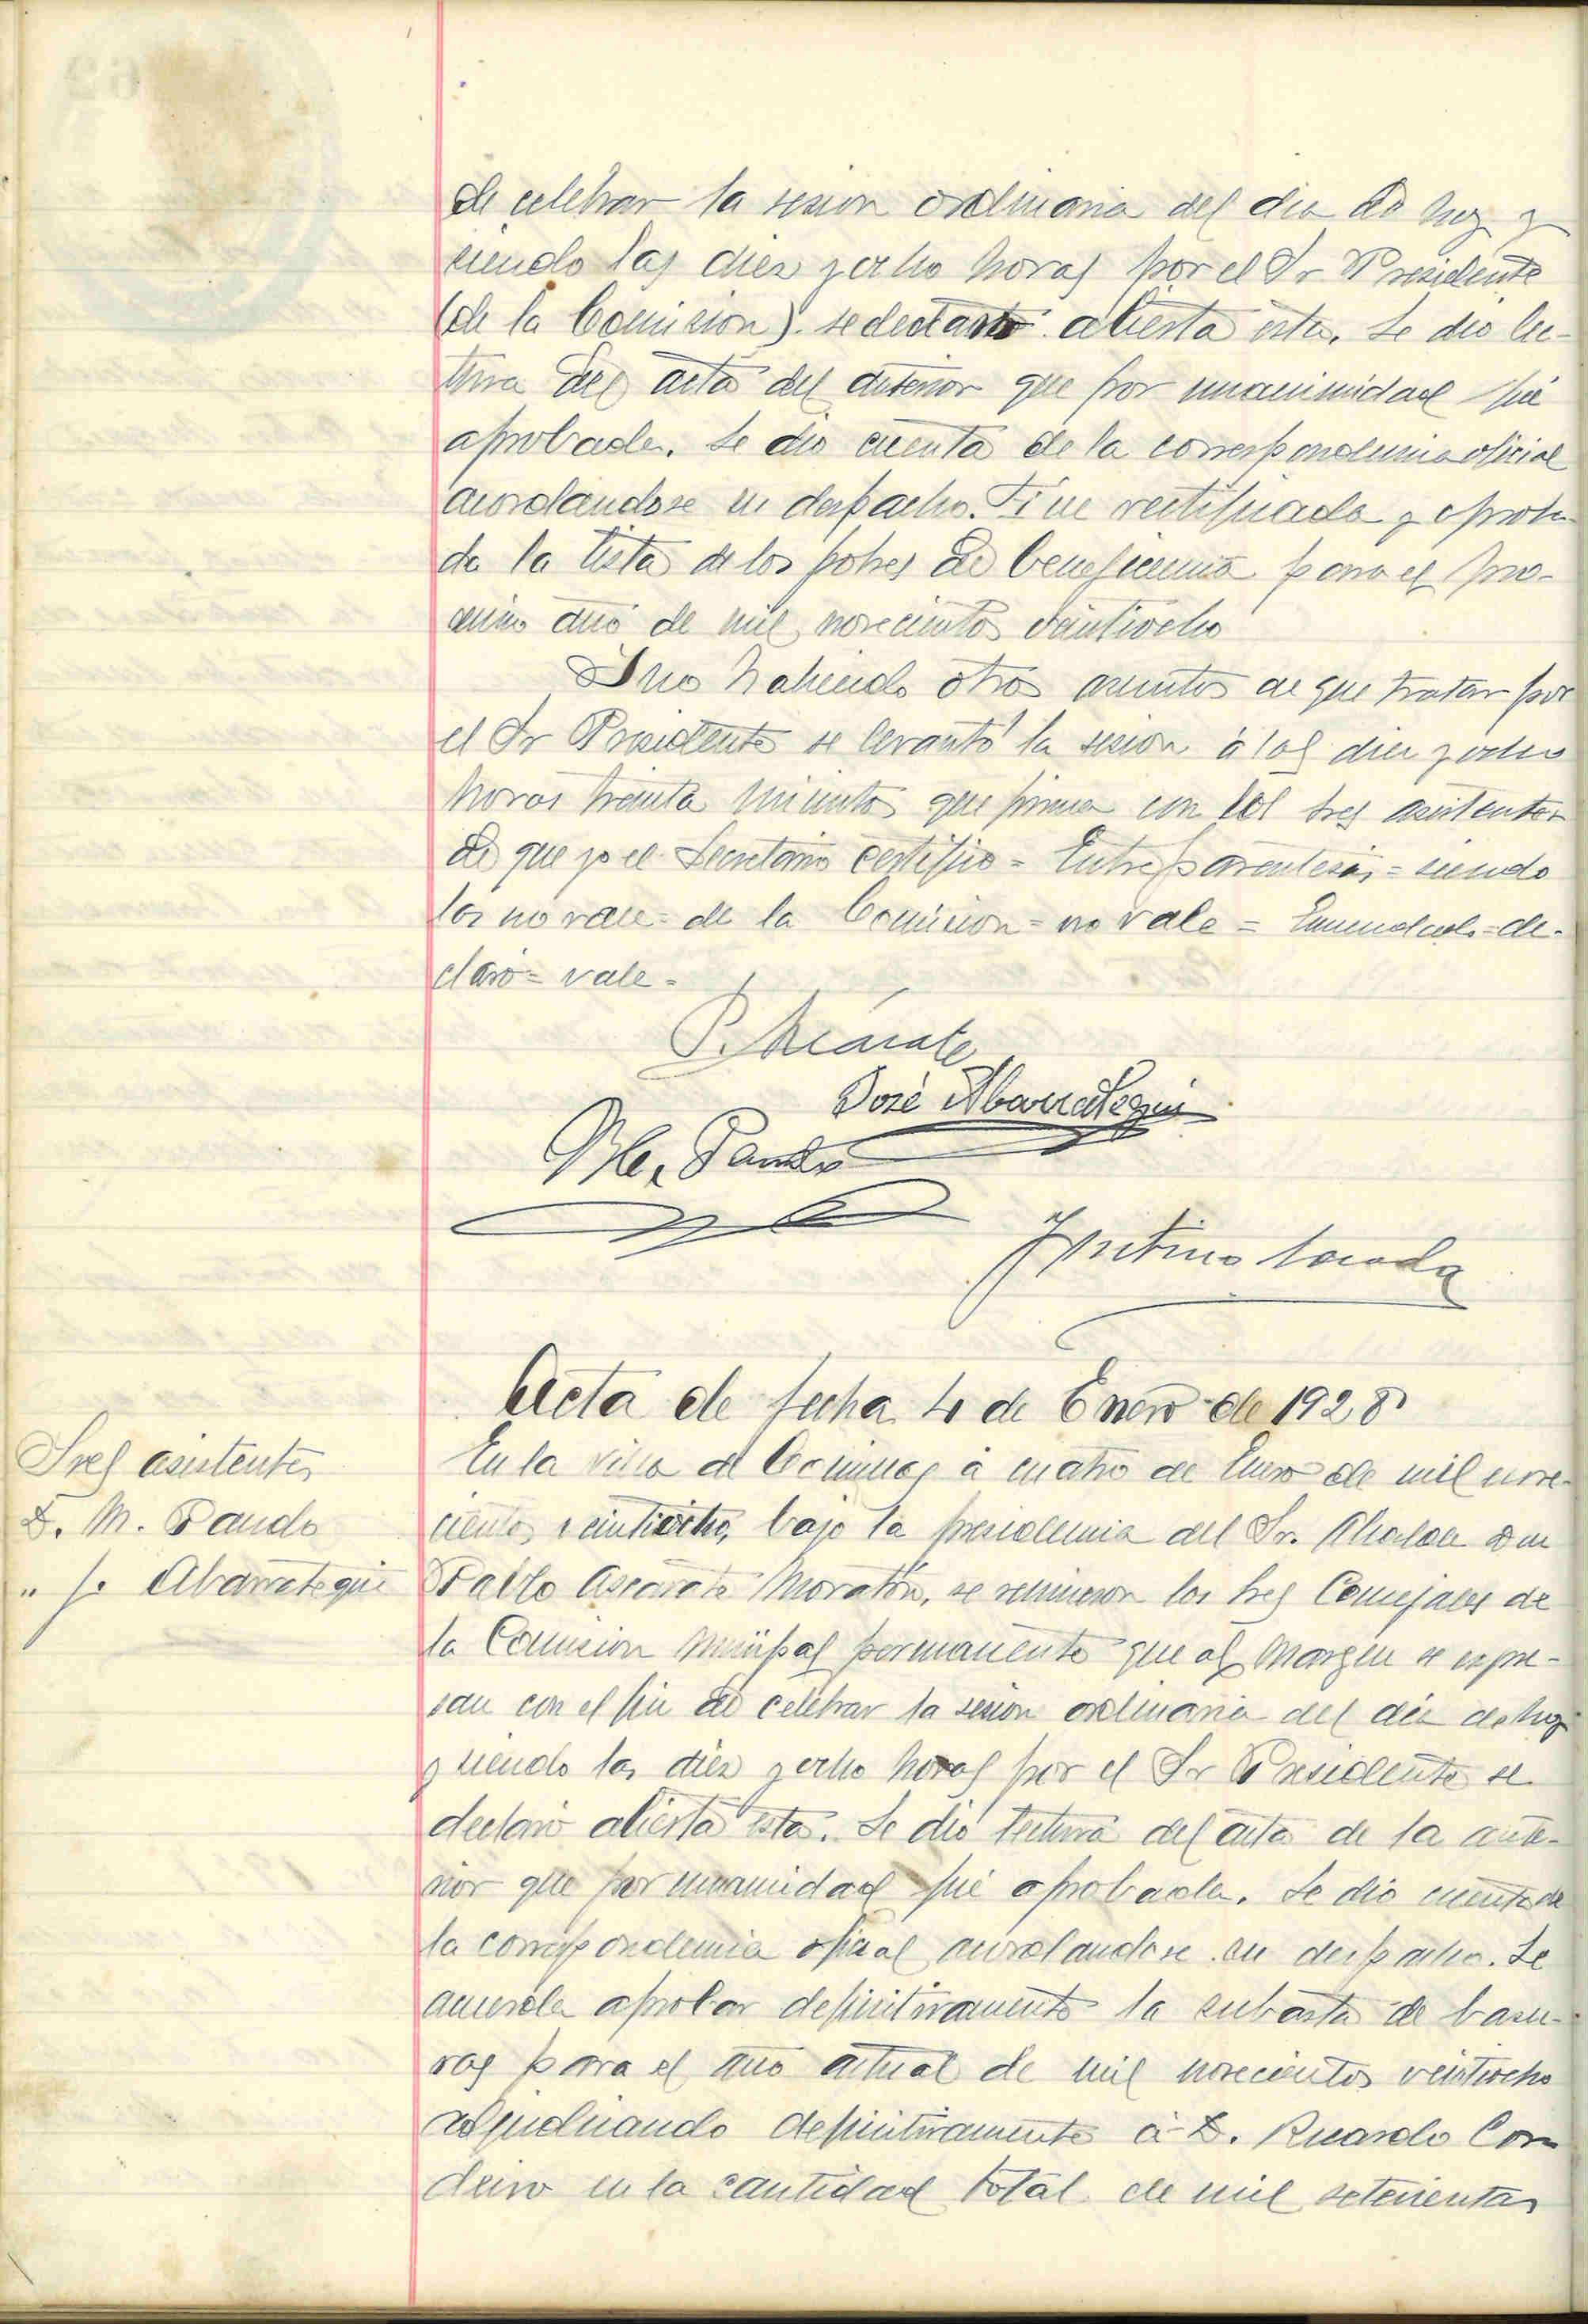 de celebrar la sesion ordinaria del dia de hoy y
siendo las diez y ocho horas por el Sr Presidente
(de la Comision) se declaró abierta esta. Se dió lec-
tura del acta del anterior que por unanimidad fué
aprobada. Se dio cuenta de la correspondencia oficial
acordandose su despacho. Fue rectificada y aproba-
da la lista de los pobres de beneficencia para el pro-
ximo año de mil novecientos veintiocho
Y no habiendo otros asuntos de que tratar por
el Sr Presidente se levantó la sesion á las diez y ocho
horas treinta minutos que firma con los Sres asistentes
de que yo el Secretario certifico = Entreparentesis = siendo
las no vale = de la Comision = no vale = Enmendado = de-
claró = vale =
P. Azcárate
José Abarrategui
M. Pando
Justino
Acta de fecha 4 de Enero de 1928
Sres asistentes
D. M. Pando
" J. Abarrategui
En la villa de Comillas á cuatro de Enero de mil nove-
cientos veintiocho, bajo la presidencia del Sr. Alcalde Don
Pablo Azcarate Moratón, se reunieron los Sres Concejales de
la Comision Municipal permanente que al margen se expre-
san con el fin de celebrar la sesion ordinaria del dia de hoy
y siendo las diez y ocho horas por el Sr Presidente se
declaró abierta esta. Se dió lectura del acta de la ante-
rior que por unanimidad fué aprobada. Se dió cuenta de
la correspondencia oficial acordandose su despacho. Se
acuerda aprobar definitivamente la subasta de basu-
ras para el año actual de mil novecientos veintiocho
adjudicando definitivamente á D. Ricardo Cor
deiro en la cantidad total de mil setecientas